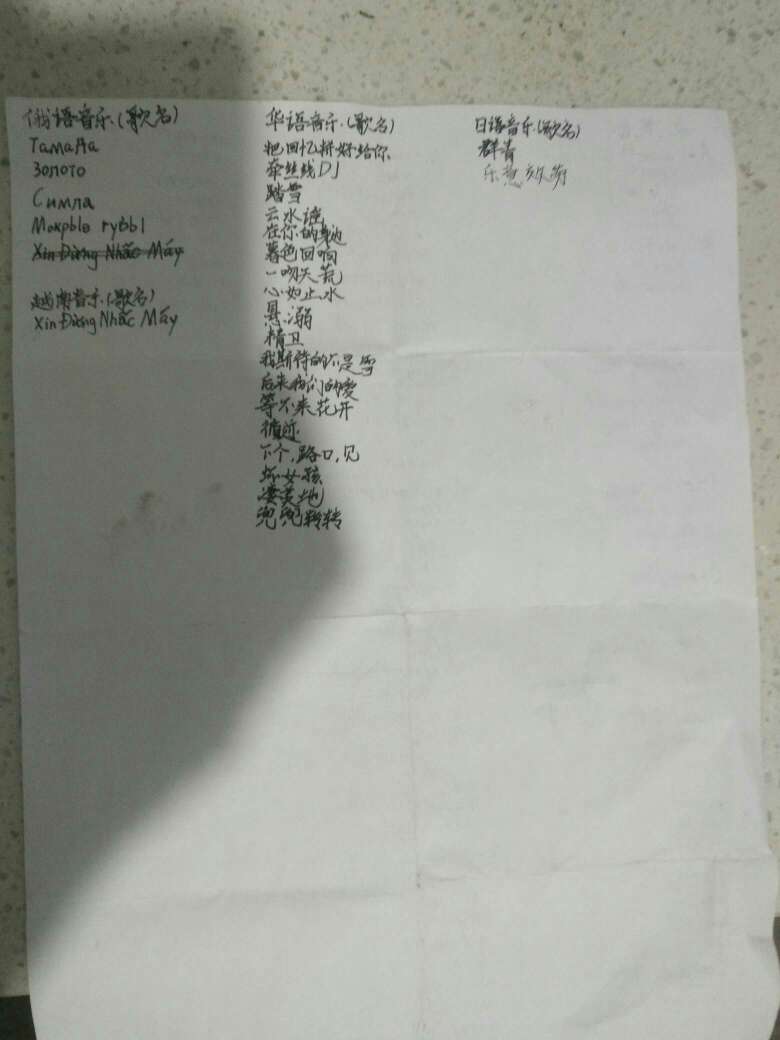 俄语音乐.(歌名)
Тамада
Золото
Симпа
Мокрые губы
Xin Đừng Nhấc Máy
越南音乐.(歌名)
Xin Đừng Nhấc Máy
华语音乐.(歌名)
把回忆拼好给你
牵丝线DJ
踏雪
云水谣
在你的身边
暮色回响
一吻天荒
心如止水
悬溺
精卫
我期待的不是雪
后来我们的爱
等不来花开
循迹
下个,路口,见
坏女孩
凄美地
兜兜转转
日语音乐.(歌名)
群青